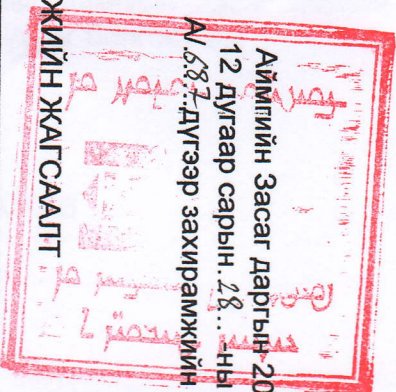 Аймгийн Засаг даргын 20
12 дугаар сарын.28...-ны
А/.687..дүгээр захирамжийн
ЖИЙН ЖАГСААЛТ